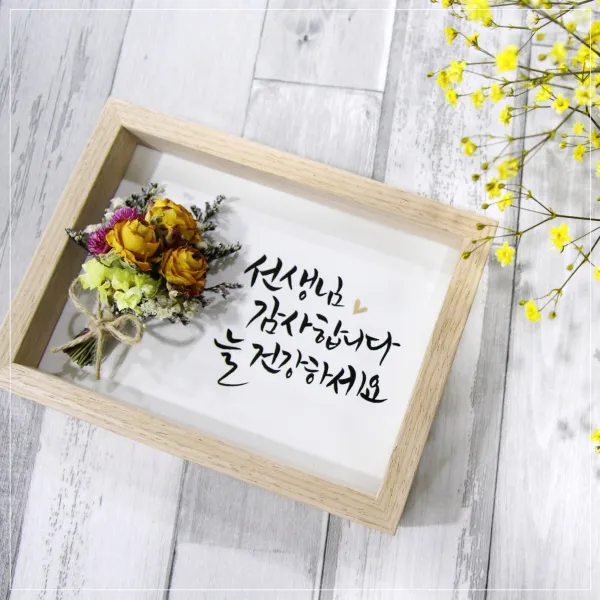 선생님
감사합니다
늘 건강하세요